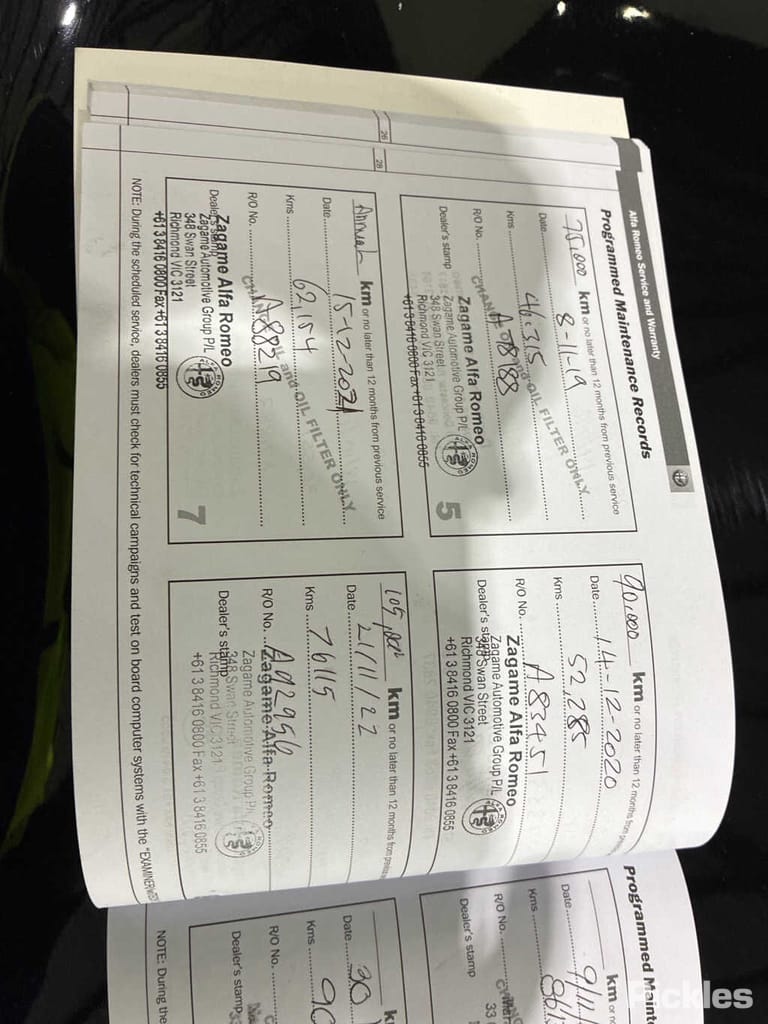 Alfa Romeo Service and Warranty
Programmed Maintenance Records
75,000 km or no later than 12 months from previous service
Date 8-1-19
Kms 46315
R/O No.
CHANGE OIL and OIL FILTER ONLY
Dealer's stamp
Zagame Alfa Romeo
Zagame Automotive Group P/L
348 Swan Street
Richmond VIC 3121
+61 3 8416 0800 Fax +61 3 8416 0855
5
90,000 km or no later than 12 months from
Date 14-12-2020
Kms 52,285
R/O No. A83451
Dealer's stamp
Zagame Alfa Romeo
Zagame Automotive Group P/L
348 Swan Street
Richmond VIC 3121
+61 3 8416 0800 Fax +61 3 8416 0855
26
28
Annual km or no later than 12 months from previous service
Date 15-12-2021
Kms 62,154
R/O No. A88219
CHANGE OIL and OIL FILTER ONLY
Dealer's stamp
Zagame Alfa Romeo
Zagame Automotive Group P/L
348 Swan Street
Richmond VIC 3121
+61 3 8416 0800 Fax +61 3 8416 0855
7
km or no later than 12 months from
Date 21/11/22
Kms 76115
R/O No.
Dealer's stamp
Zagame Alfa Romeo
Zagame Automotive Group P/L
348 Swan Street
Richmond VIC 3121
+61 3 8416 0800 Fax +61 3 8416 0855
NOTE: During the scheduled service, dealers must check for technical campaigns and test on board computer systems with the
Programmed
km or
Date
Kms
R/O No.
Dealer's stamp
Date 30
Kms 90
R/O No.
Dealer's stamp
NOTE: During the
Pickles